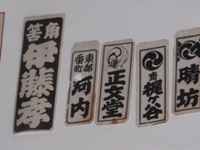 角筈
伊藤孝
東都
番町
河内
正文堂
梶ヶ谷
晴坊